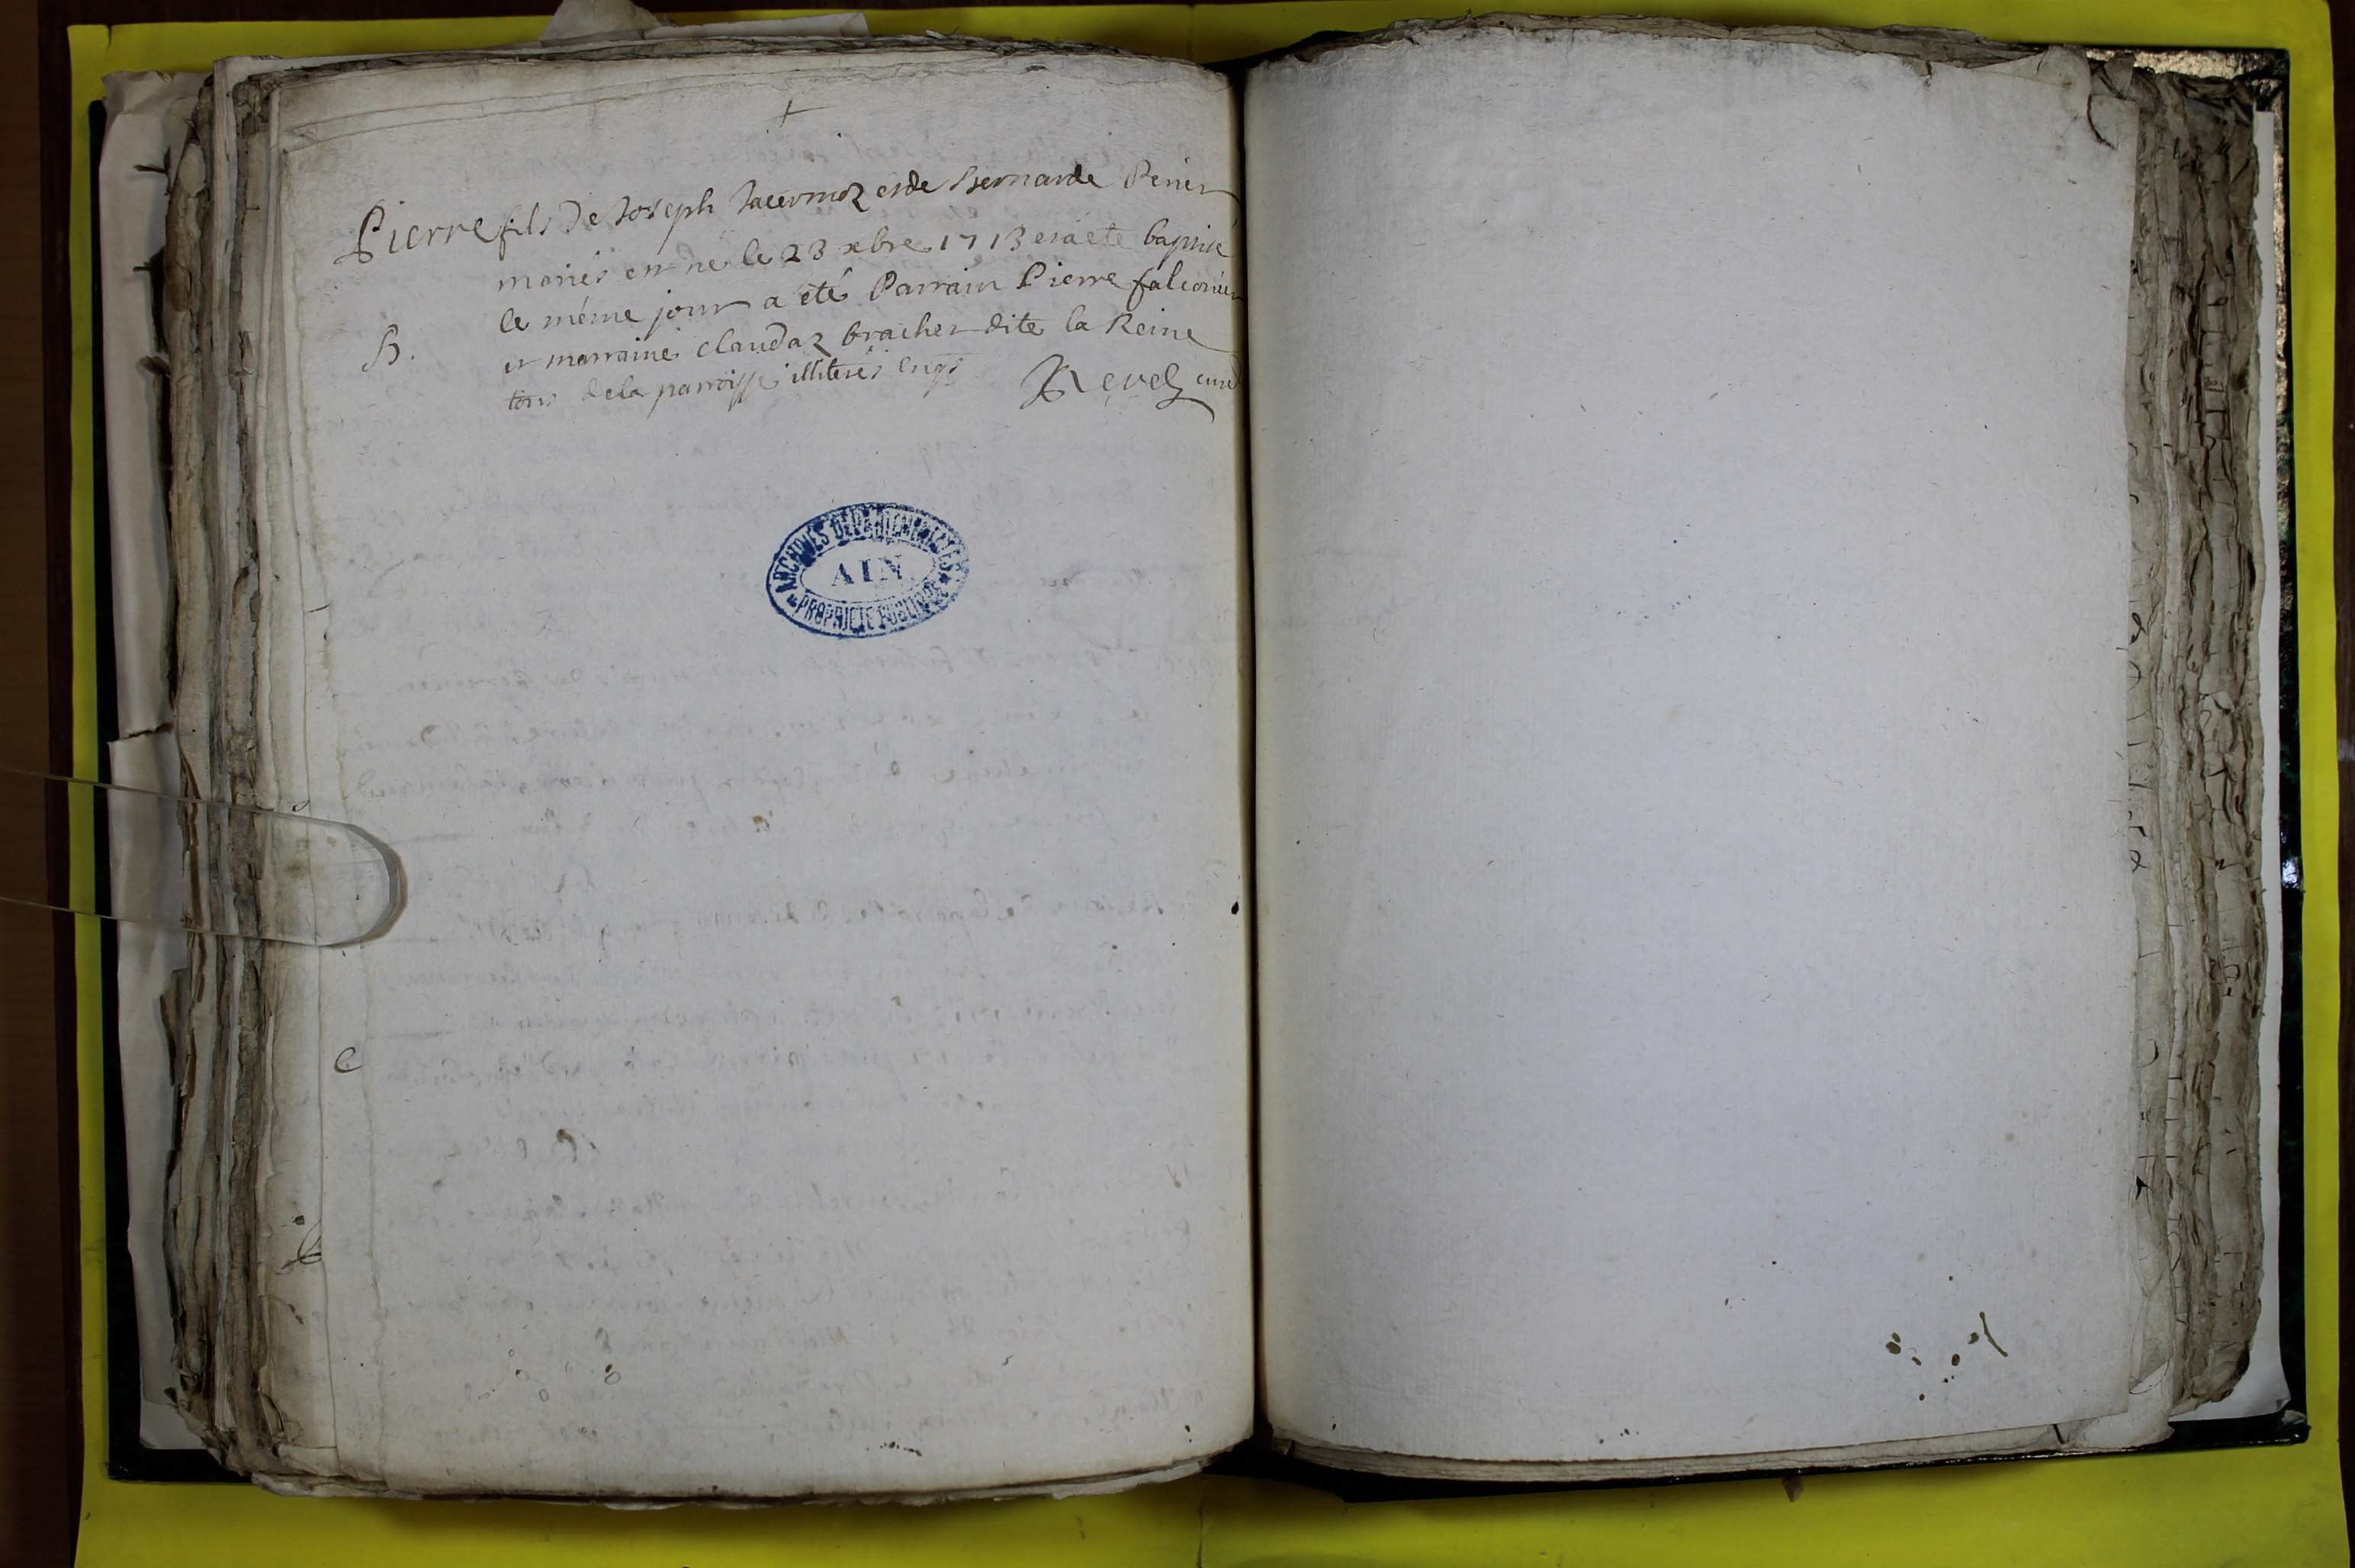 Pierre fils De Joseph Jacermoz et de Bernarde Perier
mariés est né le 23 xbre 1713 et a été baptisé
le même jour a été Parrain Pierre falconier
B.
et marraine claudaz bracher dite la Reine
tous de la parroisse illiterés enqs
Revel curé
ARCHIVES DEPARTEMENTALES
AIN
PROPRIETE PUBLIQUE